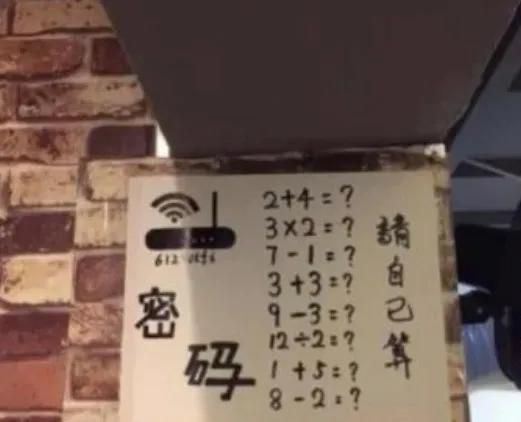 2+4=?
3×2=?
7-1=?
3+3=?
9-3=?
12÷2=?
1+5=?
8-2=?
密码
請自己算